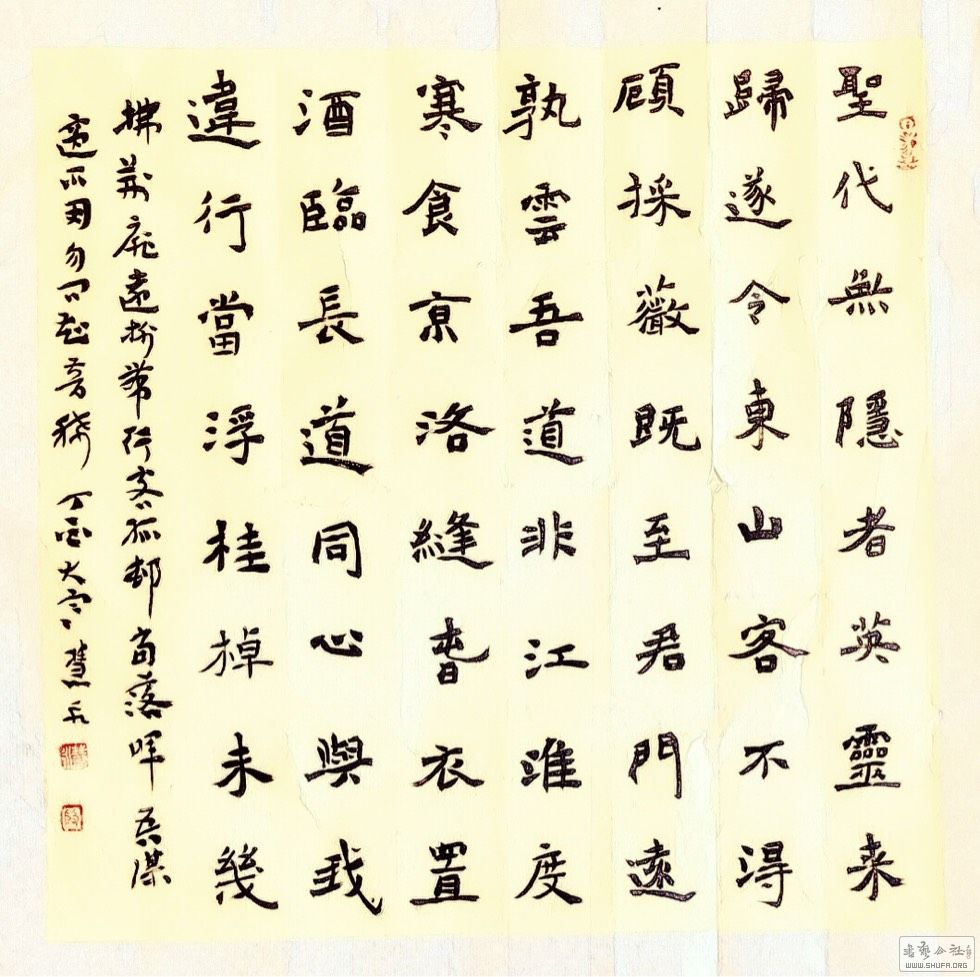 聖代無隱者英靈来
歸遂令東山客不得
顧採薇既至君門遠
孰雲吾道非江淮度
寒食亰洛縫春衣置
酒臨長道同心與我
違行當浮桂棹未幾
拂荊扉遠樹帶行客孤邨當落暉吾謀
適不用勿謂知音稀 丁酉大寒 慧
書藝公社
WWW.SHUFA.ORG